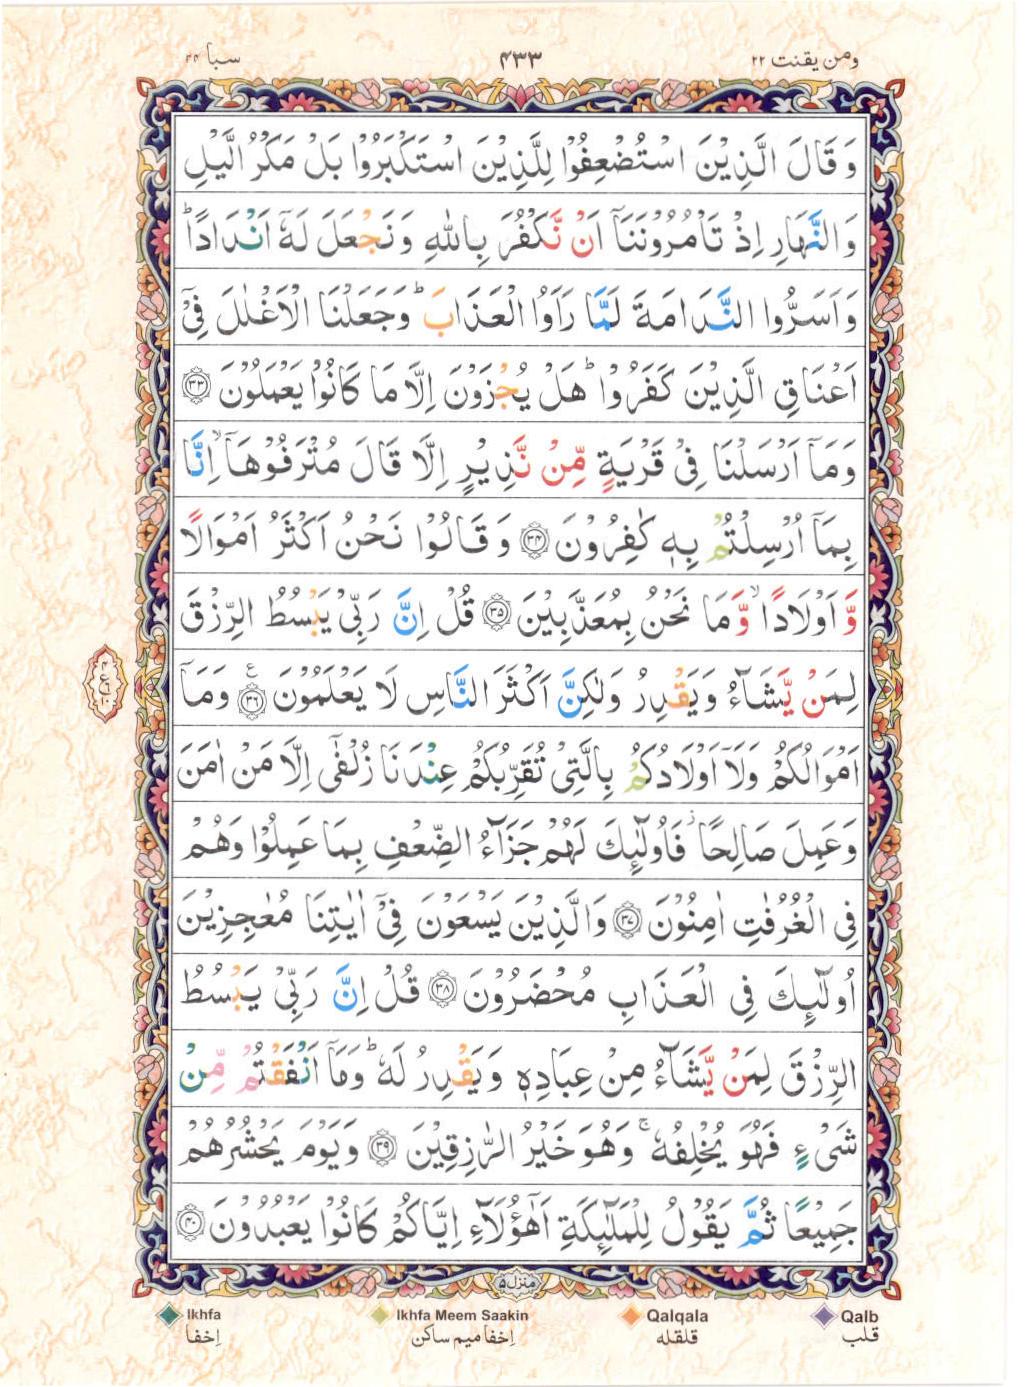 ومن يقنت ٢٢
٤٣٣
سبا ٣٤
وَ قَالَ الَّذِيْنَ اسْتُضْعِفُوْا لِلَّذِيْنَ اسْتَكْبَرُوْا بَلْ مَكْرُ الَّيْلِ
وَالنَّهَارِ اِذْ تَاْمُرُوْنَنَاۤ اَنْ نَّكْفُرَ بِاللّٰهِ وَ نَجْعَلَ لَهٗۤ اَنْدَادًاؕ
وَ اَسَرُّوا النَّدَامَةَ لَمَّا رَاَوُا الْعَذَابَؕ وَ جَعَلْنَا الْاَغْلٰلَ فِيْۤ
اَعْنَاقِ الَّذِيْنَ كَفَرُوْاؕ هَلْ يُجْزَوْنَ اِلَّا مَا كَانُوْا يَعْمَلُوْنَ ﴿٣٣﴾
وَ مَاۤ اَرْسَلْنَا فِيْ قَرْيَةٍ مِّنْ نَّذِيْرٍ اِلَّا قَالَ مُتْرَفُوْهَاۤۙ اِنَّا
بِمَاۤ اُرْسِلْتُمْ بِهٖ كٰفِرُوْنَ ﴿٣٤﴾ وَ قَالُوْا نَحْنُ اَكْثَرُ اَمْوَالًا
وَّ اَوْلَادًاۙ وَّ مَا نَحْنُ بِمُعَذَّبِيْنَ ﴿٣٥﴾ قُلْ اِنَّ رَبِّيْ يَبْسُطُ الرِّزْقَ
لِمَنْ يَّشَآءُ وَ يَقْدِرُ وَ لٰكِنَّ اَكْثَرَ النَّاسِ لَا يَعْلَمُوْنَ ﴿٣٦﴾ ع وَ مَاۤ
اَمْوَالُكُمْ وَ لَاۤ اَوْلَادُكُمْ بِالَّتِيْ تُقَرِّبُكُمْ عِنْدَنَا زُلْفٰۤى اِلَّا مَنْ اٰمَنَ
وَ عَمِلَ صَالِحًا٘ فَاُولٰٓئِكَ لَهُمْ جَزَآءُ الضِّعْفِ بِمَا عَمِلُوْا وَ هُمْ
فِي الْغُرُفٰتِ اٰمِنُوْنَ ﴿٣٧﴾ وَ الَّذِيْنَ يَسْعَوْنَ فِيْۤ اٰيٰتِنَا مُعٰجِزِيْنَ
اُولٰٓئِكَ فِي الْعَذَابِ مُحْضَرُوْنَ ﴿٣٨﴾ قُلْ اِنَّ رَبِّيْ يَبْسُطُ
الرِّزْقَ لِمَنْ يَّشَآءُ مِنْ عِبَادِهٖ وَ يَقْدِرُ لَهٗؕ وَ مَاۤ اَنْفَقْتُمْ مِّنْ
شَيْءٍ فَهُوَ يُخْلِفُهٗۚ وَ هُوَ خَيْرُ الرّٰزِقِيْنَ ﴿٣٩﴾ وَ يَوْمَ يَحْشُرُهُمْ
جَمِيْعًا ثُمَّ يَقُوْلُ لِلْمَلٰٓئِكَةِ اَهٰۤؤُلَآءِ اِيَّاكُمْ كَانُوْا يَعْبُدُوْنَ ﴿٤٠﴾
منزل ٥
Ikhfa Ikhfa Meem Saakin Qalqala Qalb
اِخفا اِخفا میم ساکن قلقله قلب